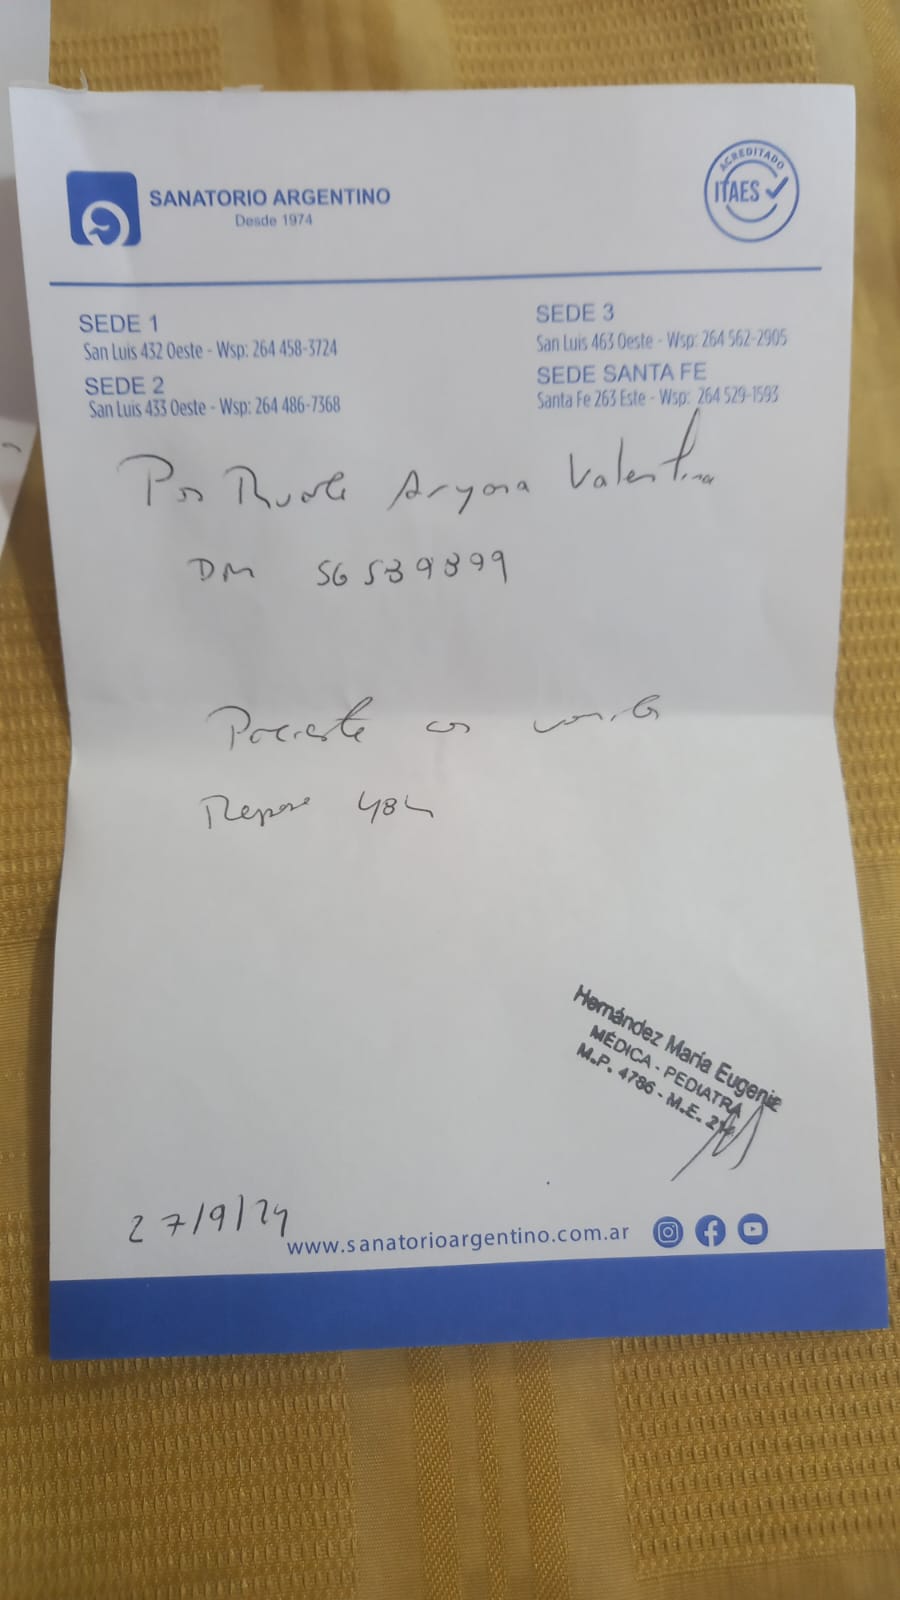 SANATORIO ARGENTINO
Desde 1974
ACREDITADO
ITAES
SEDE 1
San Luis 432 Oeste - Wsp: 264 458-3724
SEDE 2
San Luis 433 Oeste - Wsp: 264 486-7368
SEDE 3
San Luis 463 Oeste - Wsp: 264 562-2905
SEDE SANTA FE
Santa Fe 263 Este - Wsp: 264 529-1593
Valentina
56539399
Paciente con
Reposo 48h
Hernández María Eugenia
MÉDICA - PEDIATRA
M.P. 4786 - M.E.
27/9/24
www.sanatorioargentino.com.ar